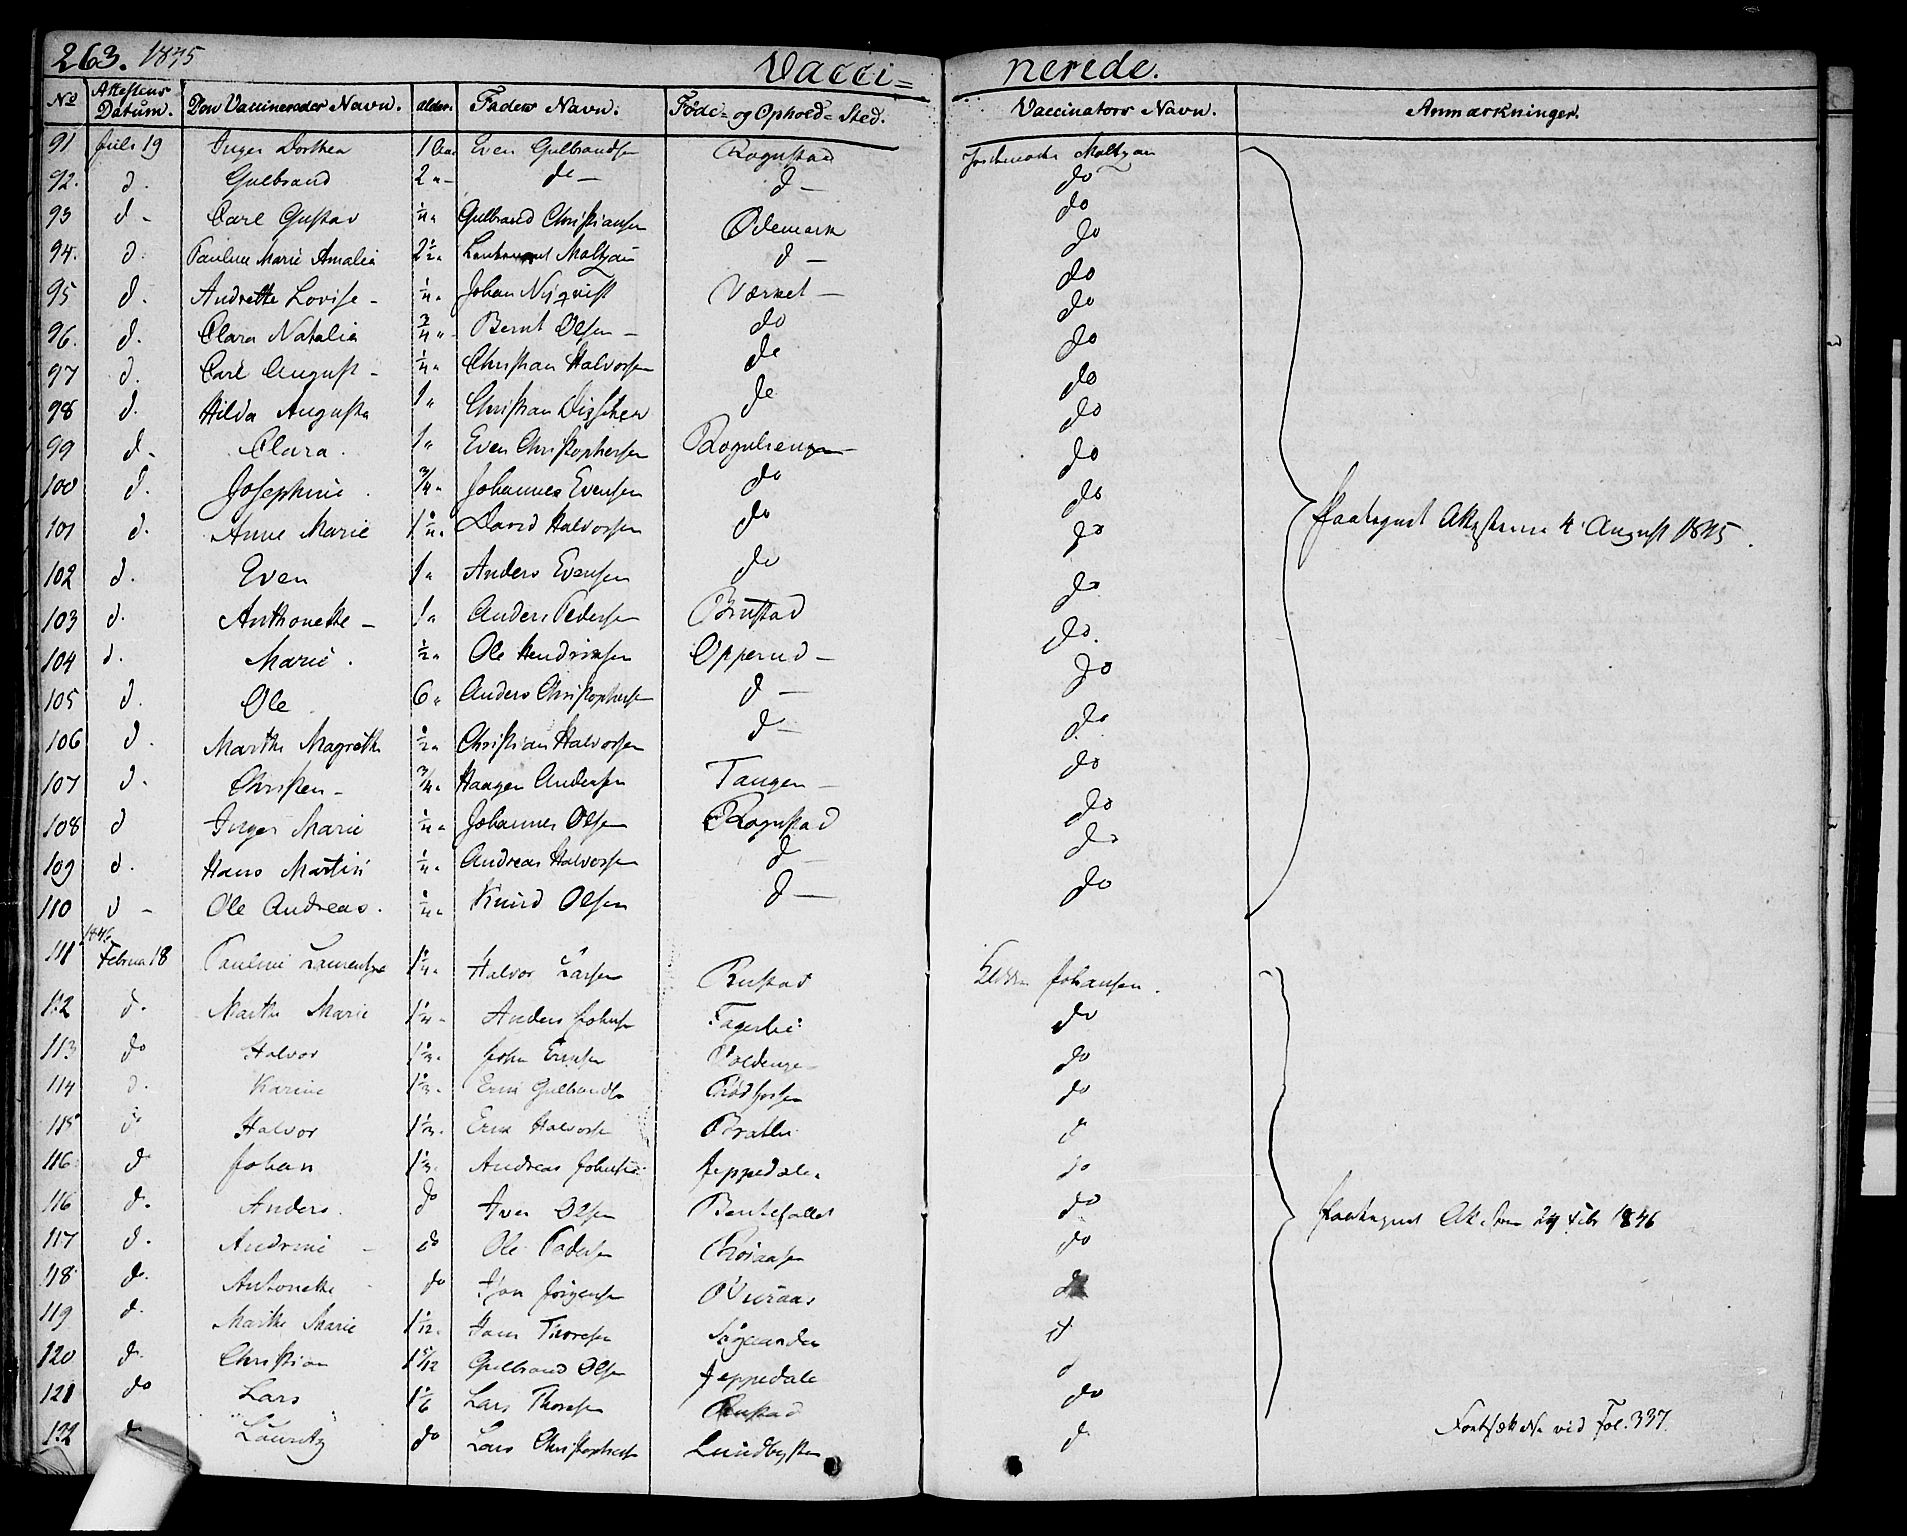 263. 1845 Vacci= nerede.
No Attestens Datum. Den Vaccineredes Navn. alder. Faders Navn. Føde= og Ophold= Sted. Vaccinators Navn. Anmærkninger.
91 Juli 19 Inger Dorthea 1 Even Gulbrandsen Rognstad Jordemoder Moltzau
92. d. Gulbrand 2 " do — d — do
93 d - Carl Gustav 1/4 " Gulbrand Christiansen Ødemark do
94. d. Pauline Marie Amalia 2 1/2 " Lieutenant Moltzau d — do
95 d. Andrette Lovise - 1/4 " Johan Nyqvist Værket — do
96. d. Clara Natalia 3/4 " Bernt Olsen - do do
97 d. Carl August - 1/4 " Christian Halvorsen do do
98 d. Hilda Augusta 1 " Christian do do
99 d. Clara. 1 " Even Christophersen do
100 d. Josephine. 3/4 " Johannes Evensen do do
101 d. Anne Marie 1 1/4 " David Halvorsen do do
102 d. Even 1 " Anders Evensen do do
103 d. Anthonette - 1 " Anders Pedersen Brustad do
104 d. Marie. 1/2 " Ole Hendriksen Opperud — do.
105 d. Ole 6 " Anders Christophersen d — do
106 d. Marthe Magrethe 1/2 " Christian Halvorsen d — do
107 d. Christen - 3/4 " Haagen Andersen Tangen — do
108 d Inger Marie 1/4 " Johannes Olsen Rognstad do
109 d. Hans Martin 1/4 " Andreas Halvorsen d — do
110 d - Ole Andreas. 1/4 " Knud Olsen d — do
Attesterne 4 August 1845.
1846
111 Februar 18 Pauline 1 1/4 " Halvor Larsen Rustad Johansen.
112 d. Marthe Marie 1 1/4 " Anders Johnsen do
113 do Halvor 1 1/3 " John Eriksen do
114 d. Karine 1 1/3 " Erik Gulbrandsen Rødfossen do
115 d. Halvor 1 1/3 " Erik Halvorsen Bratli d
116 d. Johan 1 1/3 " Andreas Johnsen Jeppedalen do
116 d. Anders. do Iver Olsen do
117 d. Andrine - do Ole Pedersen do
118 d. Antonette - do Jørgensen d
119 d. Marthe Marie 1 1/12 " Hans Thoresen d
120 d. Christian 1 5/12 Gulbrand Olsen Jeppedale d
121 do Lars 1 1/6 Lars Thoresen Rustad do
122 d. Lauritz do Lars Christophersen d
24 Febr 1846
Fortsættelse vid Fol. 337.